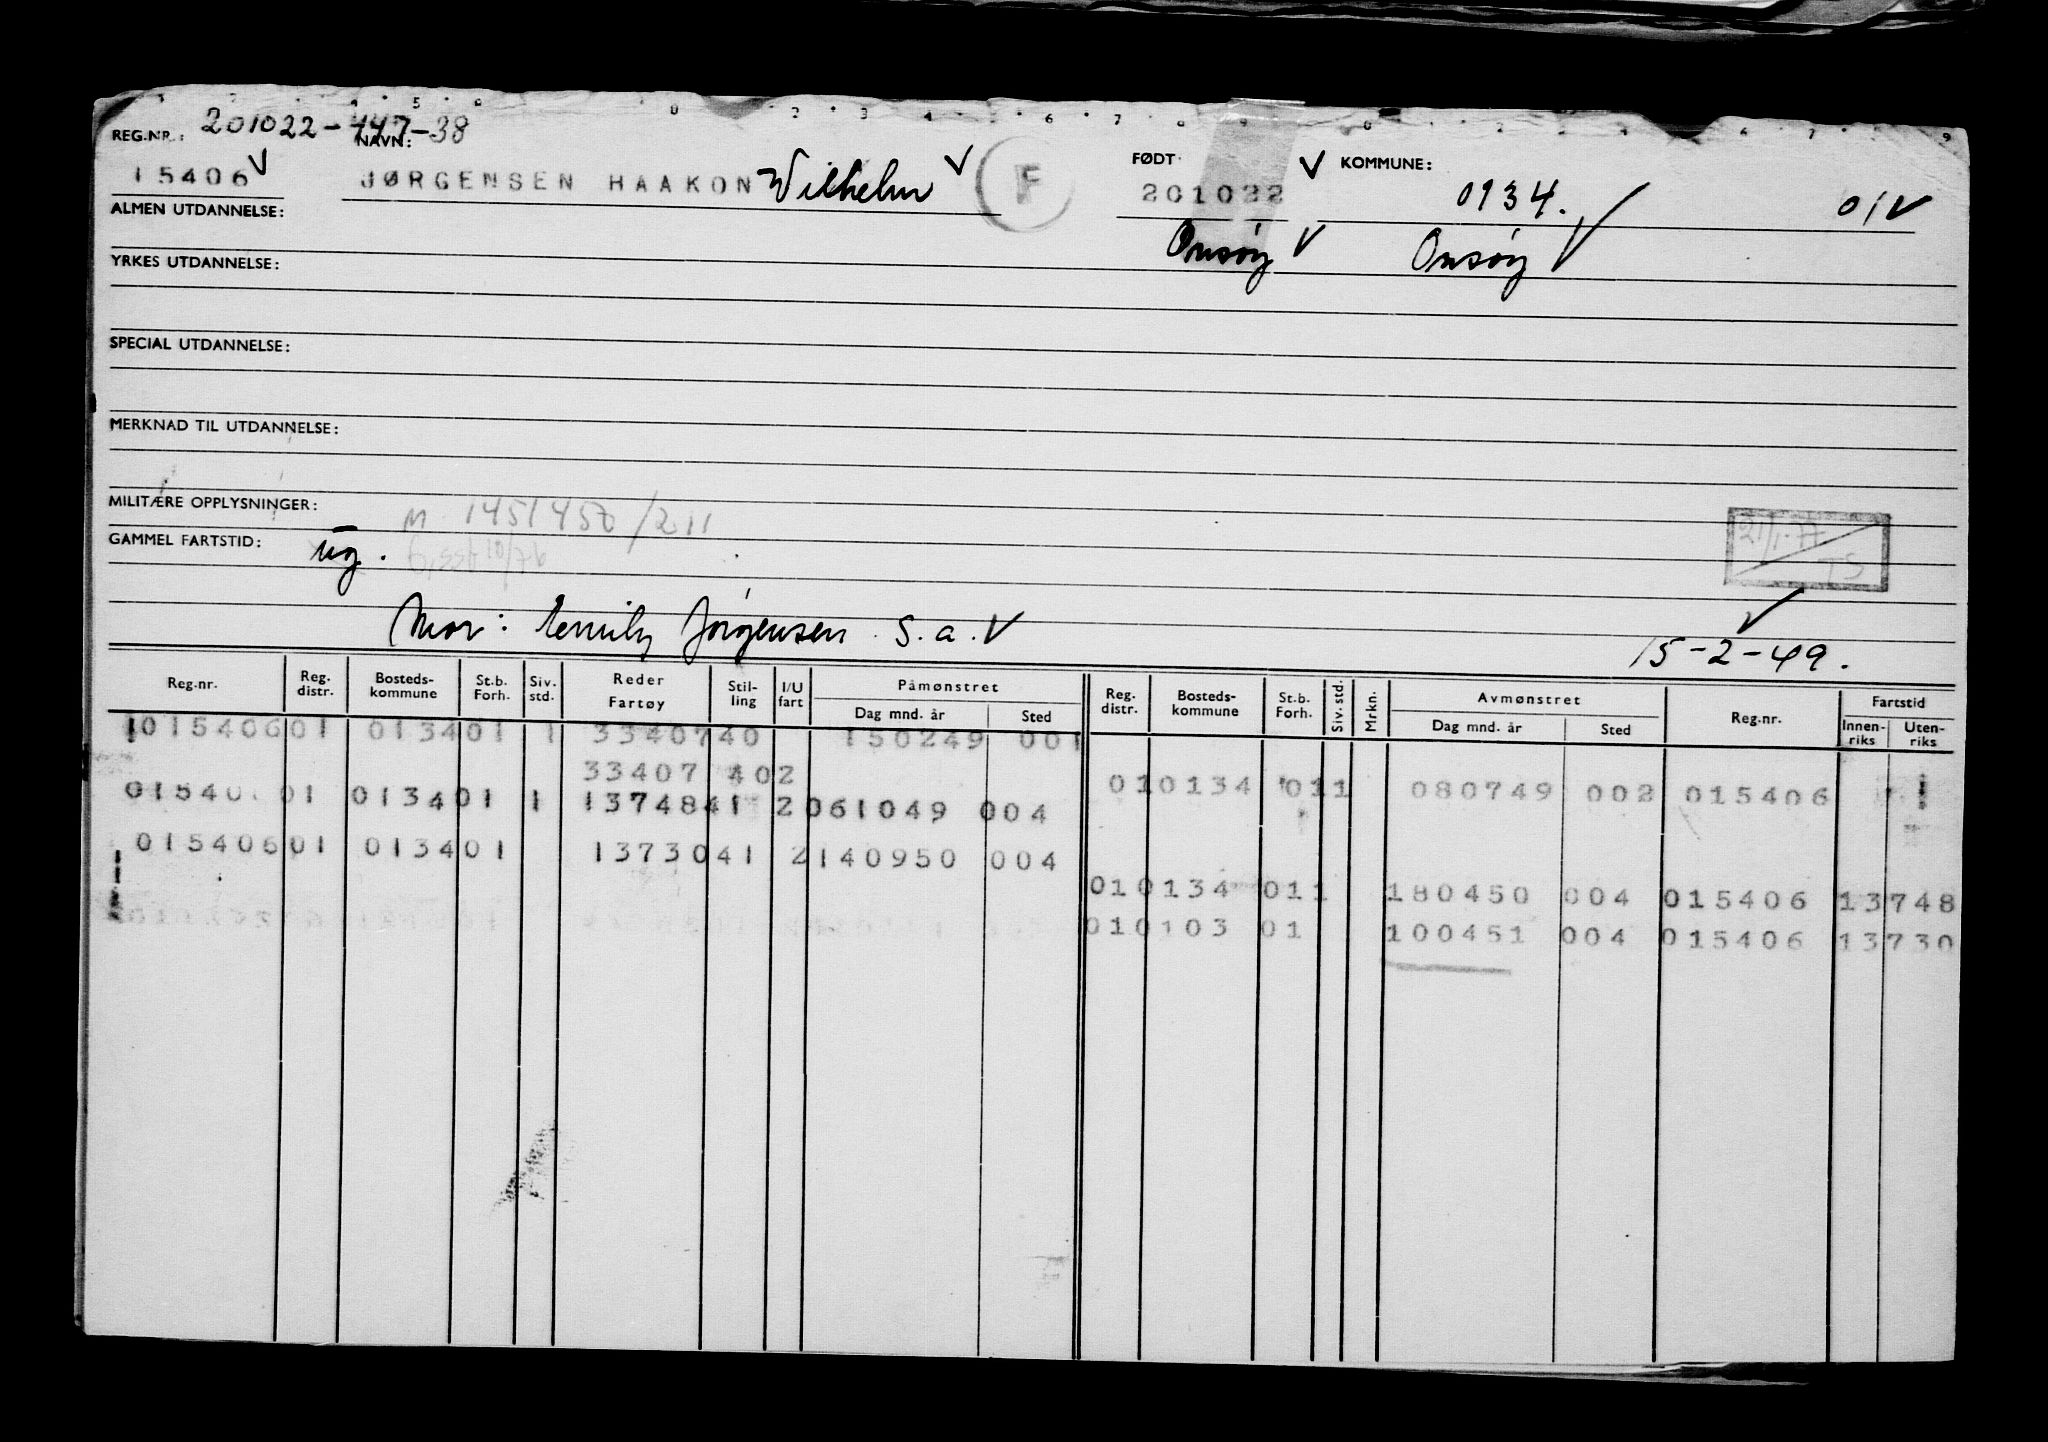 REG.NR.: 201022-447-38
NAVN:
FØDT
KOMMUNE:
15406 V
JØRGENSEN HAAKON Wilhelm V
F
201022 V
0134.
01 V
ALMEN UTDANNELSE:
Onsøy V
Onsøy V
YRKES UTDANNELSE:
SPECIAL UTDANNELSE:
MERKNAD TIL UTDANNELSE:
MILITÆRE OPPLYSNINGER:
M 1451450/211
21/1-77
TS
GAMMEL FARTSTID:
ug.
Mor: Emily Jørgensen S.a. V
15-2-49. V
Reg.nr. Reg. distr. Bosteds-kommune St.b. Forh. Siv. std. Reder Fartøy Stil-ling I/U fart Påmønstret Dag mnd. år Sted Reg. distr. Bosteds-kommune St.b. Forh. Siv. std. Mrkn. Avmønstret Dag mnd. år Sted Reg.nr. Fartstid Innen-riks Uten-riks
015406 01 0134 01 1 33407 40 150249 001
33407 40 2
01 0134 01 1 080749 002 015406
01540 01 0134 01 1 13748 41 2 061049 004
015406 01 0134 01 13730 41 2 140950 004
01 0134 01 1 180450 004 015406 13748
01 0103 01 100451 004 015406 13730